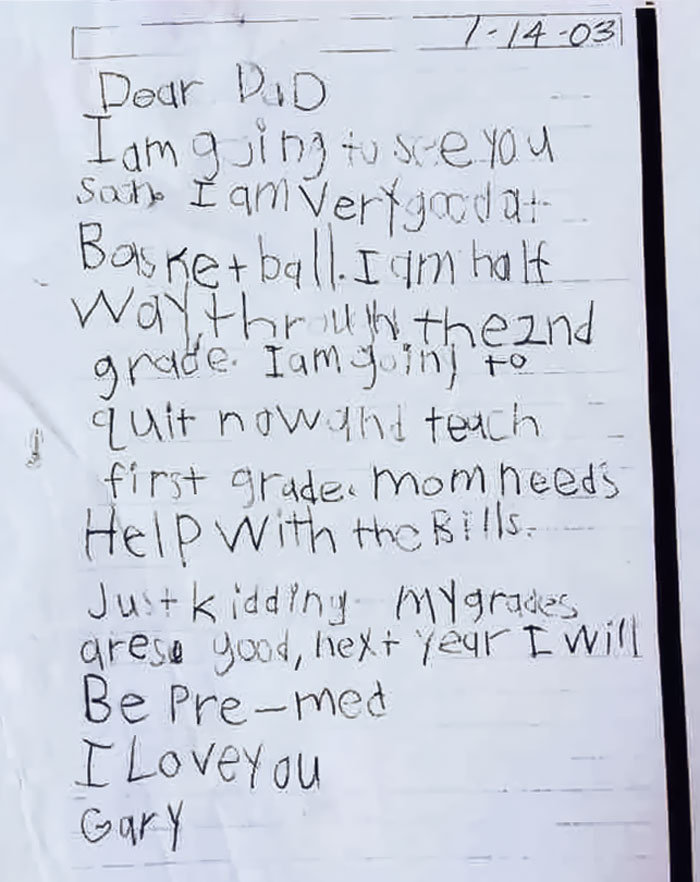 1-14-03
Dear DaD
I am going to see you
soon. I am Very good at
Basketball. I am half
way through the 2nd
grade. I am going to
quit now and teach
first grade. mom needs
Help With the Bills.
Just kidding my grades
are so good, next year I will
Be Pre-med
I Love you
Gary